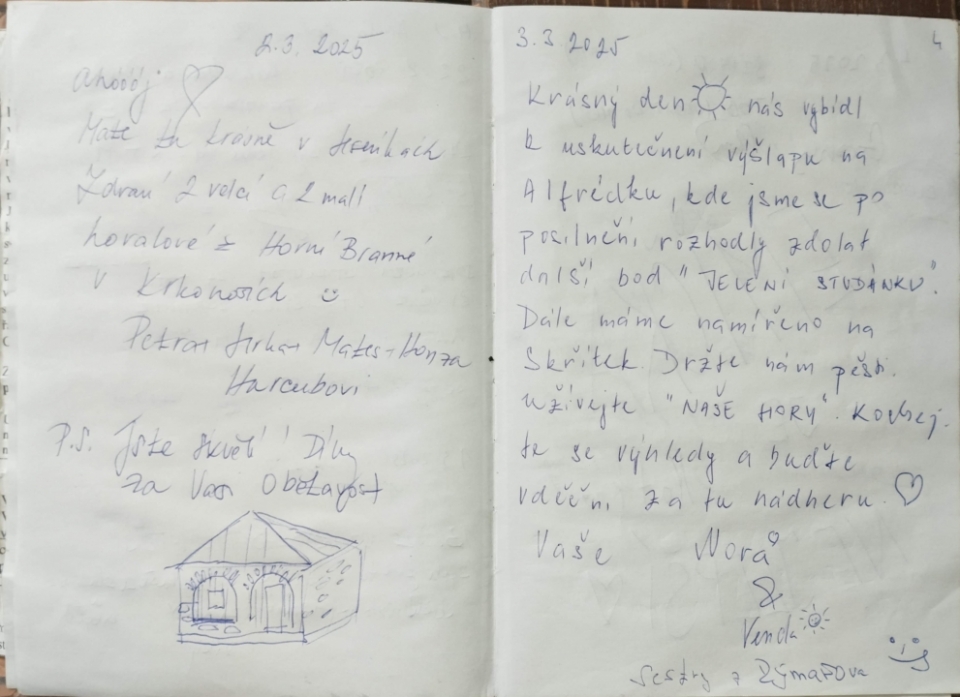 2.3. 2025
ahóóój
Máte to krásné v Jeseníkách
Zdraví 2 velcí a 2 malí
z Horní Branné
v Krkonoších
Petra+ Jirka+ Mates+Honza
Harcubovi
P.S. Jste skvělí! Díky
za Vaši Obětavost
3.3.2025
4
Krásný den nás vybídl
k uskutečnení výšlapu na
Alfrédku, kde jsme se po
posilnění rozhodly zdolat
další bod "JELENÍ STUDÁNKU".
Dále máme namířeno na
Skřítek. Držte nám pěsti.
užívejte "NAŠE HORY". Kochej-
te se výhledy a buďte
vděčni za tu nádheru.
Vaše Nora
&
Venda
sestry z Rýmařova